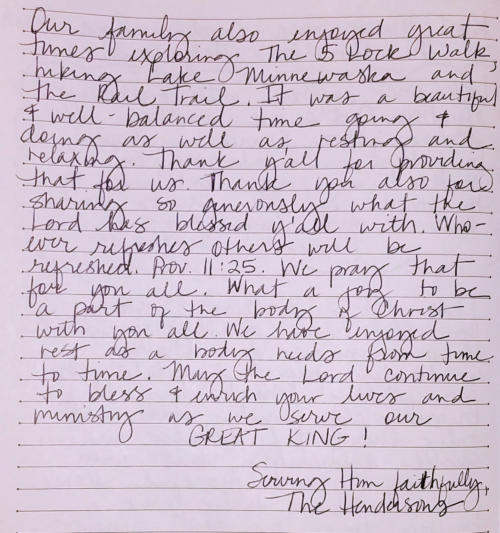 Our family also enjoyed great
times exploring The 5 Lock Walk,
hiking Lake Minnewaska and
the Rail Trail. It was a beautiful
& well-balanced time going &
doing as well as resting and
relaxing. Thank y'all for providing
that for us. Thank you also for
sharing so generously what the
Lord has blessed y'all with. Who-
ever refreshes others will be
refreshed. Prov. 11:25. We pray that
for you all. What a joy to be
a part of the body of Christ
with you all. We have enjoyed
rest as a body needs from time
to time. May the Lord continue
to bless & enrich your lives and
ministry as we serve our
GREAT KING!
Serving Him faithfully,
The Hendersons